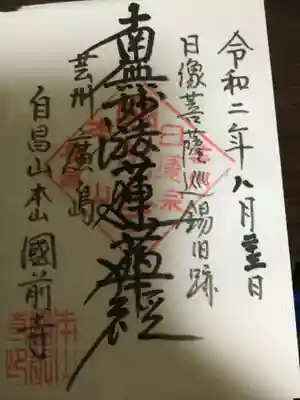 令和二年八月十三日
日像菩薩巡錫旧跡
南無妙法蓮華経
芸州廣島
自昌山本山國前寺